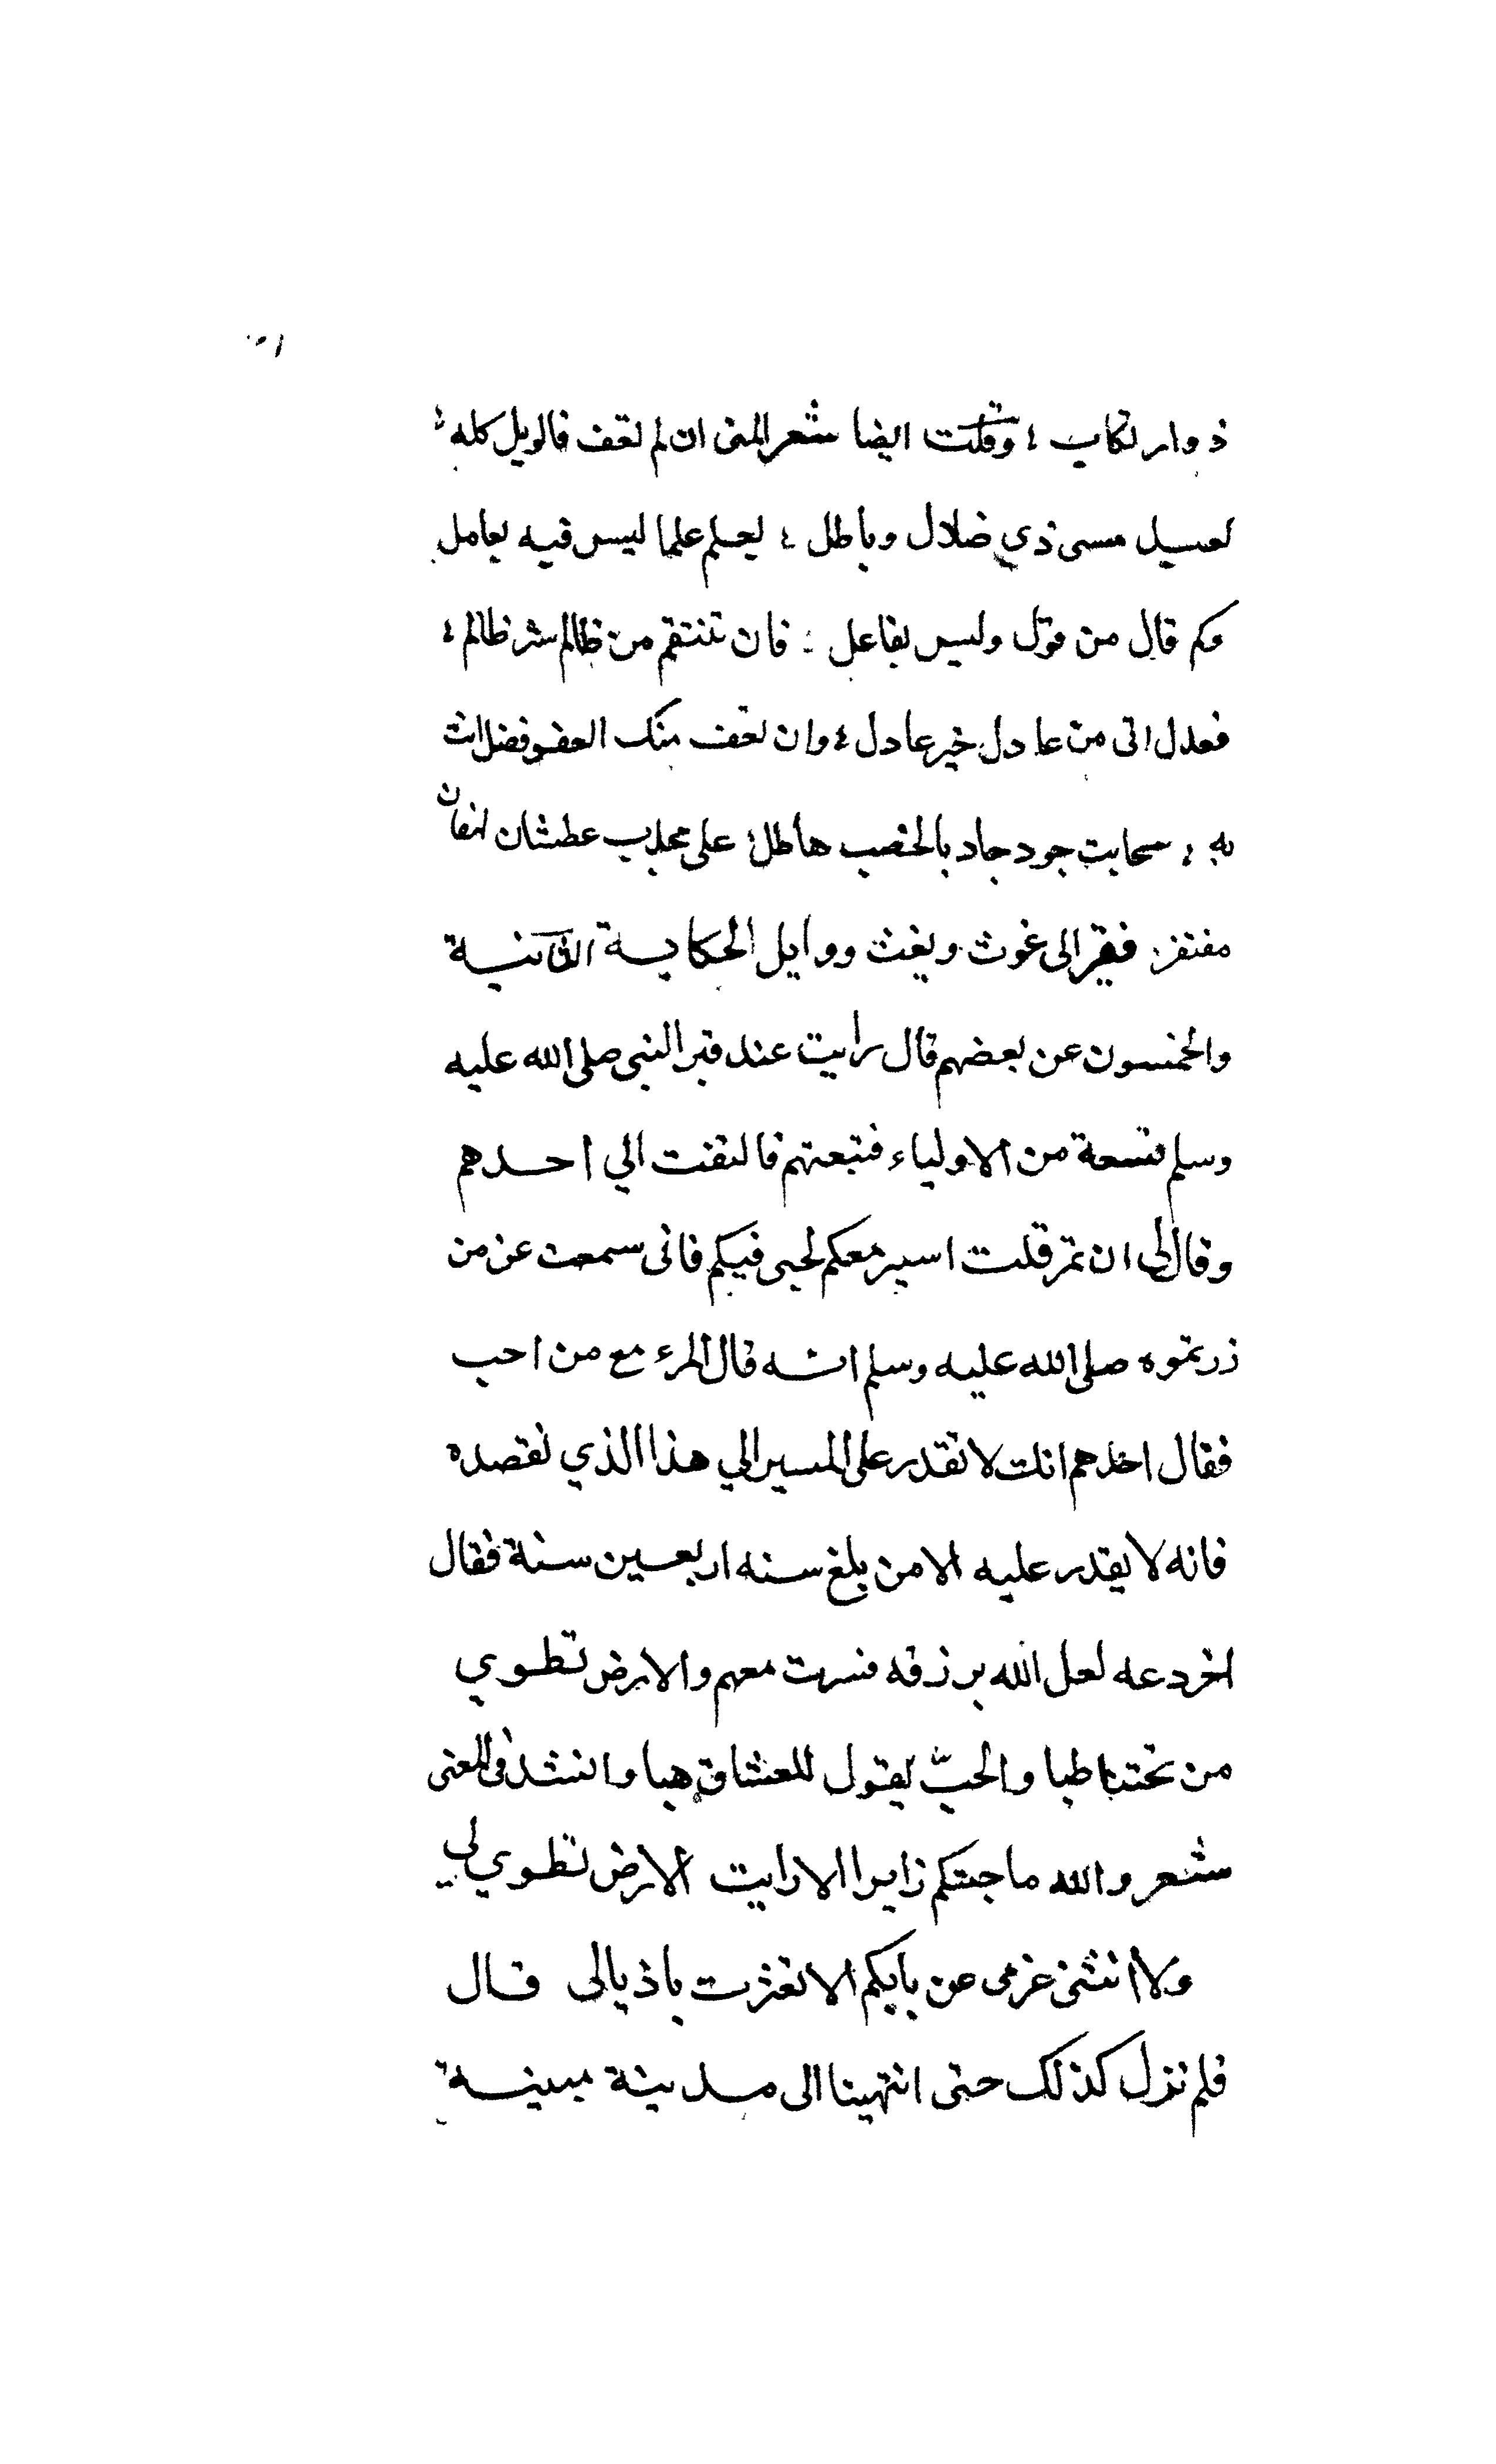 ذوارتكاب ؛ وقلت ايضا شعر الهى ان لم تعف فالويل كله ؛
لعبد مسى ذي ضلال وباطل ؛ يعلم علما ليس فيه بعامل
وكم قال من قول وليس بفاعل ؛ فان تنتقم من ظالم شر ظالم ؛
فعدل اتى من عادل خير عادل ؛ وان تعف منك العفو فضل اتت
به ؛ سحايب جود جاد بالخصب هاطل ؛ على مجدب عطشان لهفان
مفتقر فقير الى غوث وغيث ووايل الحكاية الثانية
والخمسون عن بعضهم قال رايت عند قبر النبى صلى الله عليه
وسلم تسعة من الاولياء فتبعتهم فالتفت الي احدهم
وقال لي ان تمر قلت اسير معكم لحبى فيكم فانى سمعت عن من
زرتموه صلى الله عليه وسلم انه قال المرء مع من احب
فقال احدهم انك لا تقدر على المسير الي هذا الذي نقصده
فانه لا يقدر عليه الا من بلغ سنه اربعين سنة فقال
اخر دعه لعل الله يرزقه فسرت معهم والارض تطوي
من تحتنا طيا والحب يقول للعشاق هيا وانشد فى المعنى
شعر والله ما جيتكم زايرا الا رايت الارض تطوي لي
ولا انثنى عزمى عن بابكم الا تعثرت باذيالى قال
فلم نزل كذلك حتى انتهينا الى مدينة مبنية